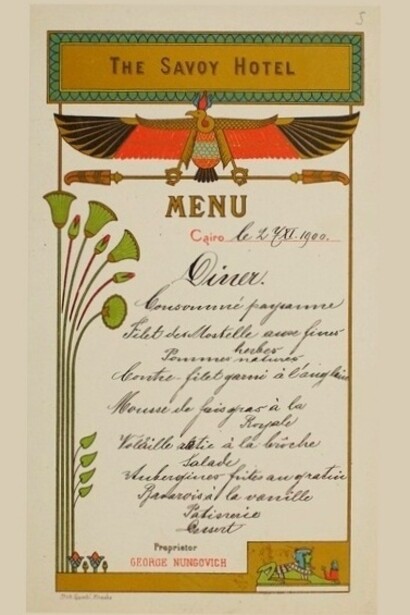 5
THE SAVOY HOTEL
MENU
Cairo le 2 XI. 1900.
Diner.
Consommé paysanne
Filet de Mostelle aux fines
herbes
Pommes natures
Contre-filet garni à l'anglaise
Mousse de foie gras à la
Royale
Volaille rôtie à la broche
Salade
Aubergines frites au gratin
Bavarois à la vanille
Pâtisserie
Dessert
Proprietor
GEORGE NUNGOVICH